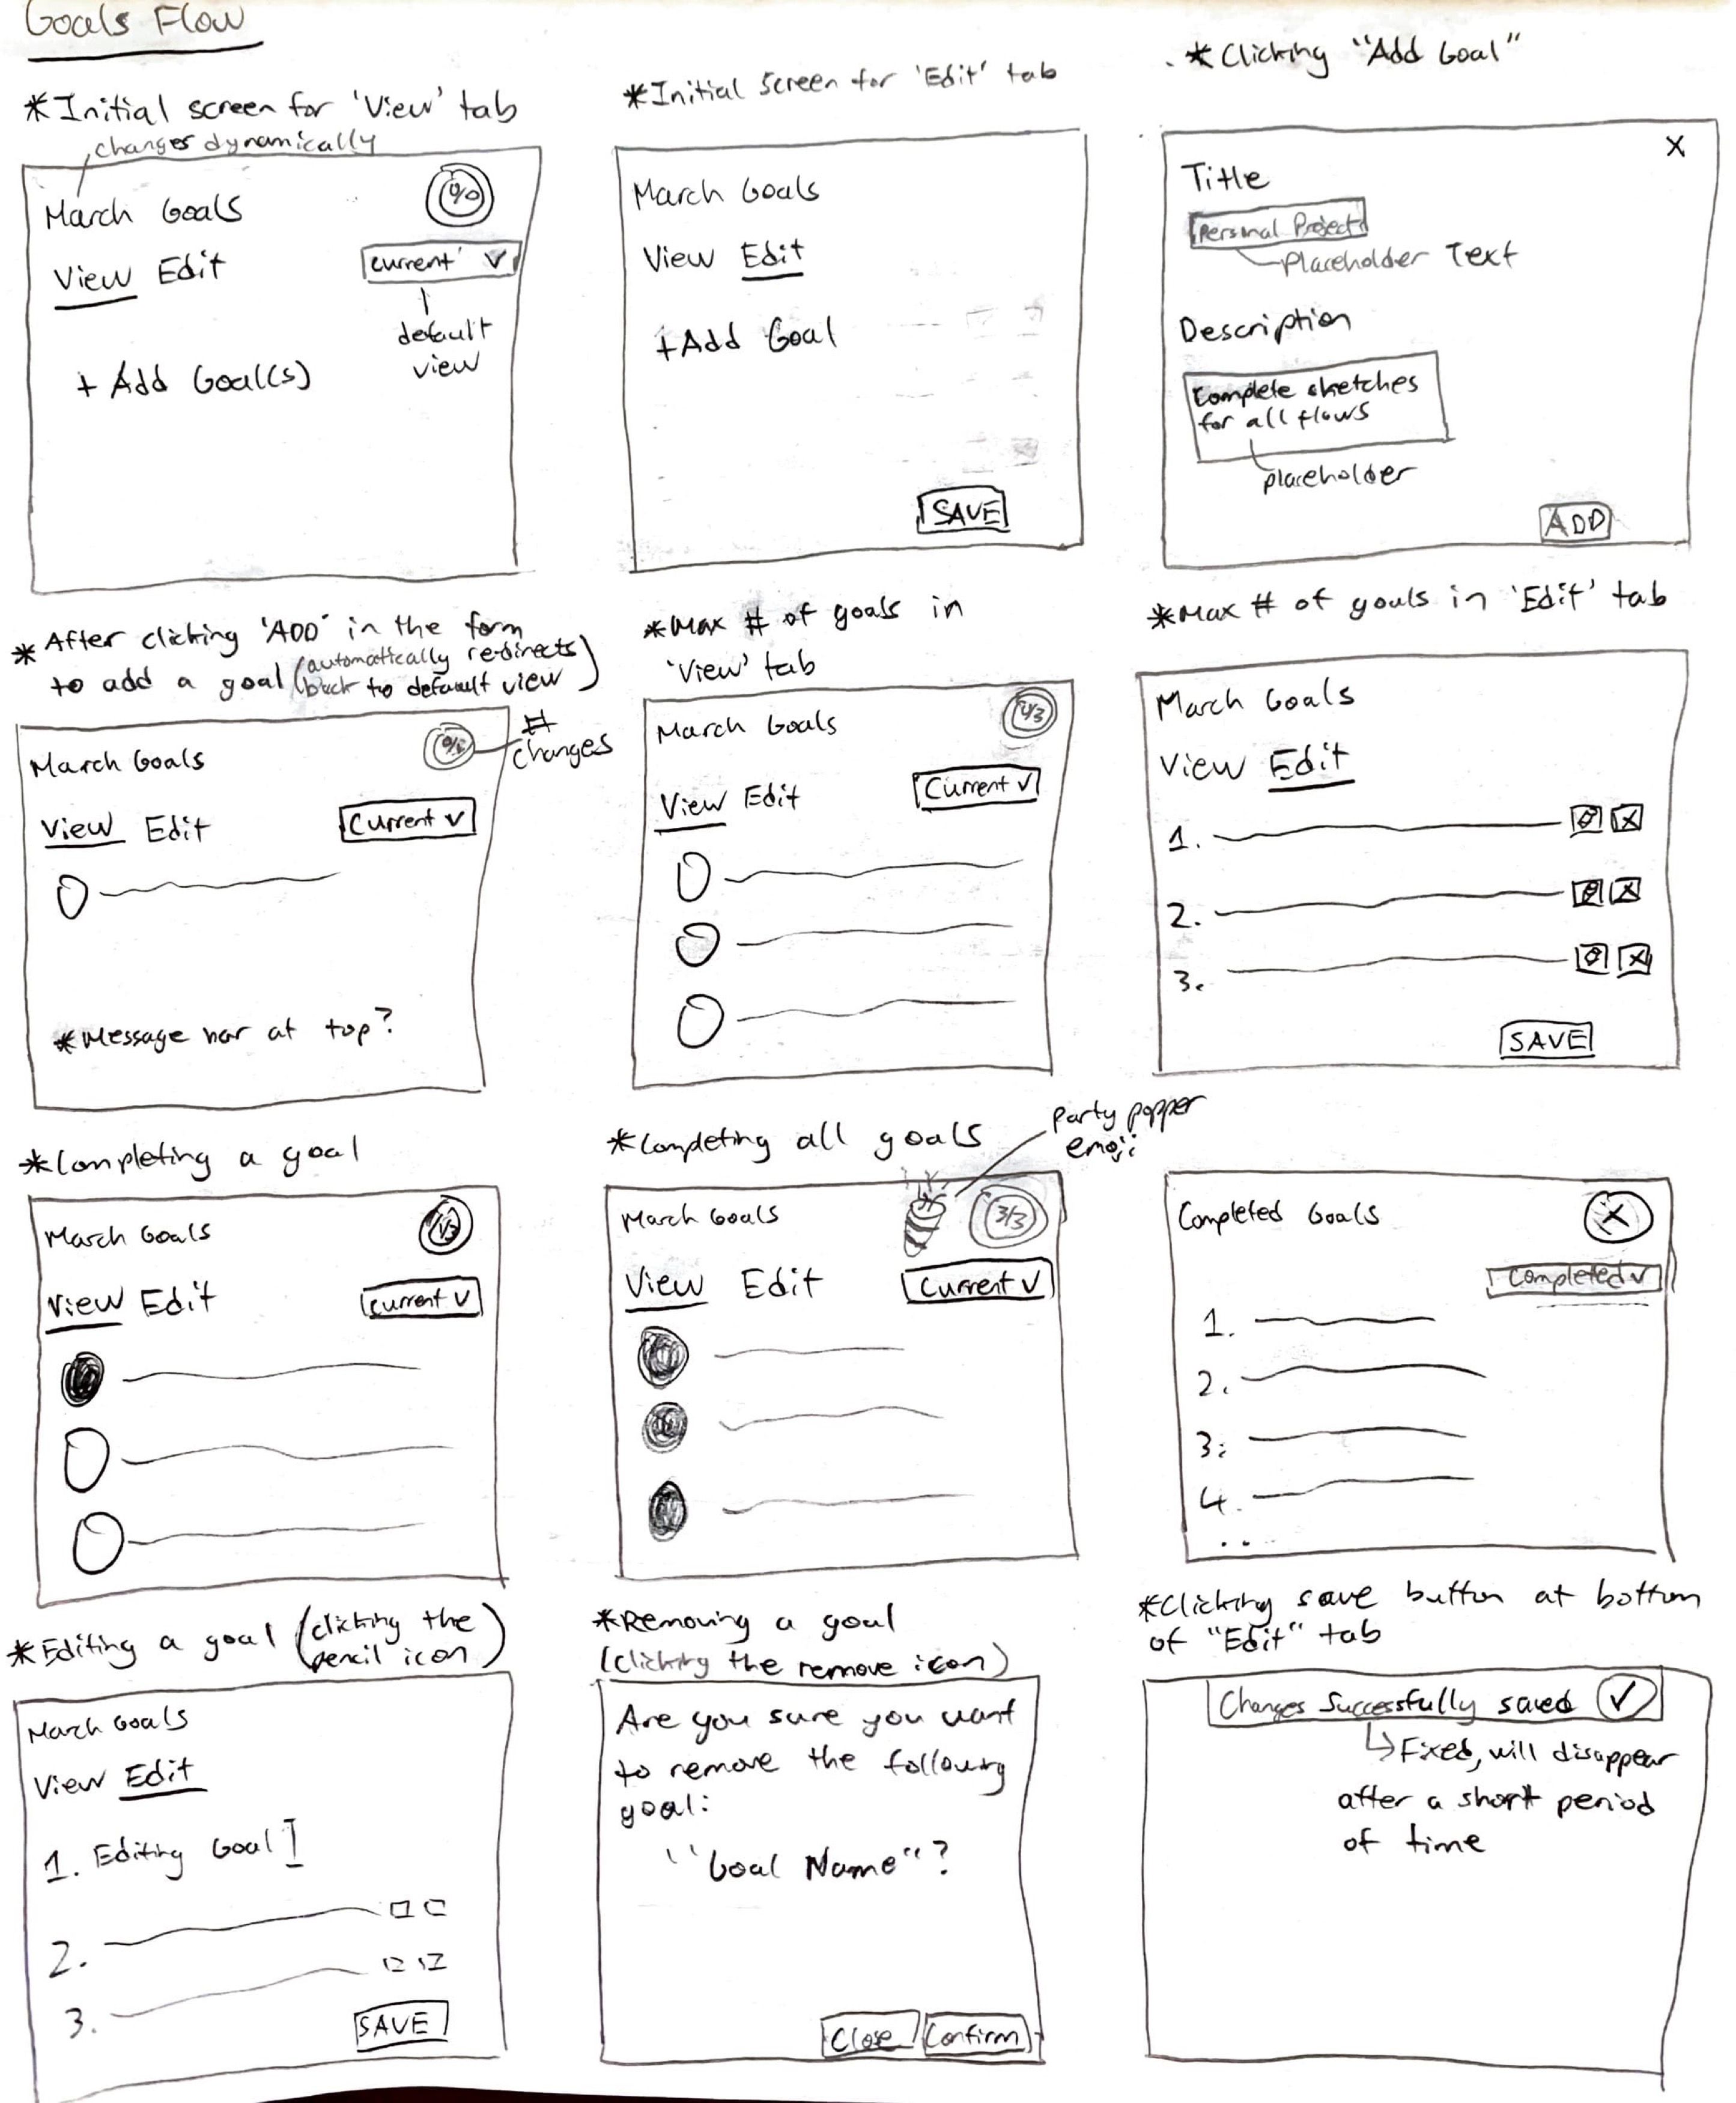 Goals Flow
*Initial screen for 'View' tab
changes dynamically
March Goals
0/0
View Edit
Current v
default
view
+ Add Goal(s)
*Initial screen for 'Edit' tab
March Goals
View Edit
+Add Goal
SAVE
*Clicking "Add Goal"
X
Title
Personal Project
Placeholder Text
Description
Complete sketches
for all flows
placeholder
ADD
*After clicking 'ADD' in the form
to add a goal (automatically redirects
back to default view)
March Goals
#
changes
View Edit
Current v
*Message bar at top?
*Max # of goals in
'View' tab
March Goals
View Edit
Current v
*Max # of goals in 'Edit' tab
March Goals
View Edit
1.
2.
3.
SAVE
*Completing a goal
March Goals
1/3
View Edit
Current v
*Completing all goals
Party popper
emoji
March Goals
3/3
View Edit
Current v
Completed Goals
X
Completed v
1.
2.
3.
4.
...
*Editing a goal (clicking the
pencil icon)
March Goals
View Edit
1. Editing Goal
2.
3.
SAVE
*Removing a goal
(clicking the remove icon)
Are you sure you want
to remove the following
goal:
"Goal Name"?
Close
Confirm
*Clicking save button at bottom
of "Edit" tab
Changes Successfully saved ✓
Fixed, will disappear
after a short period
of time